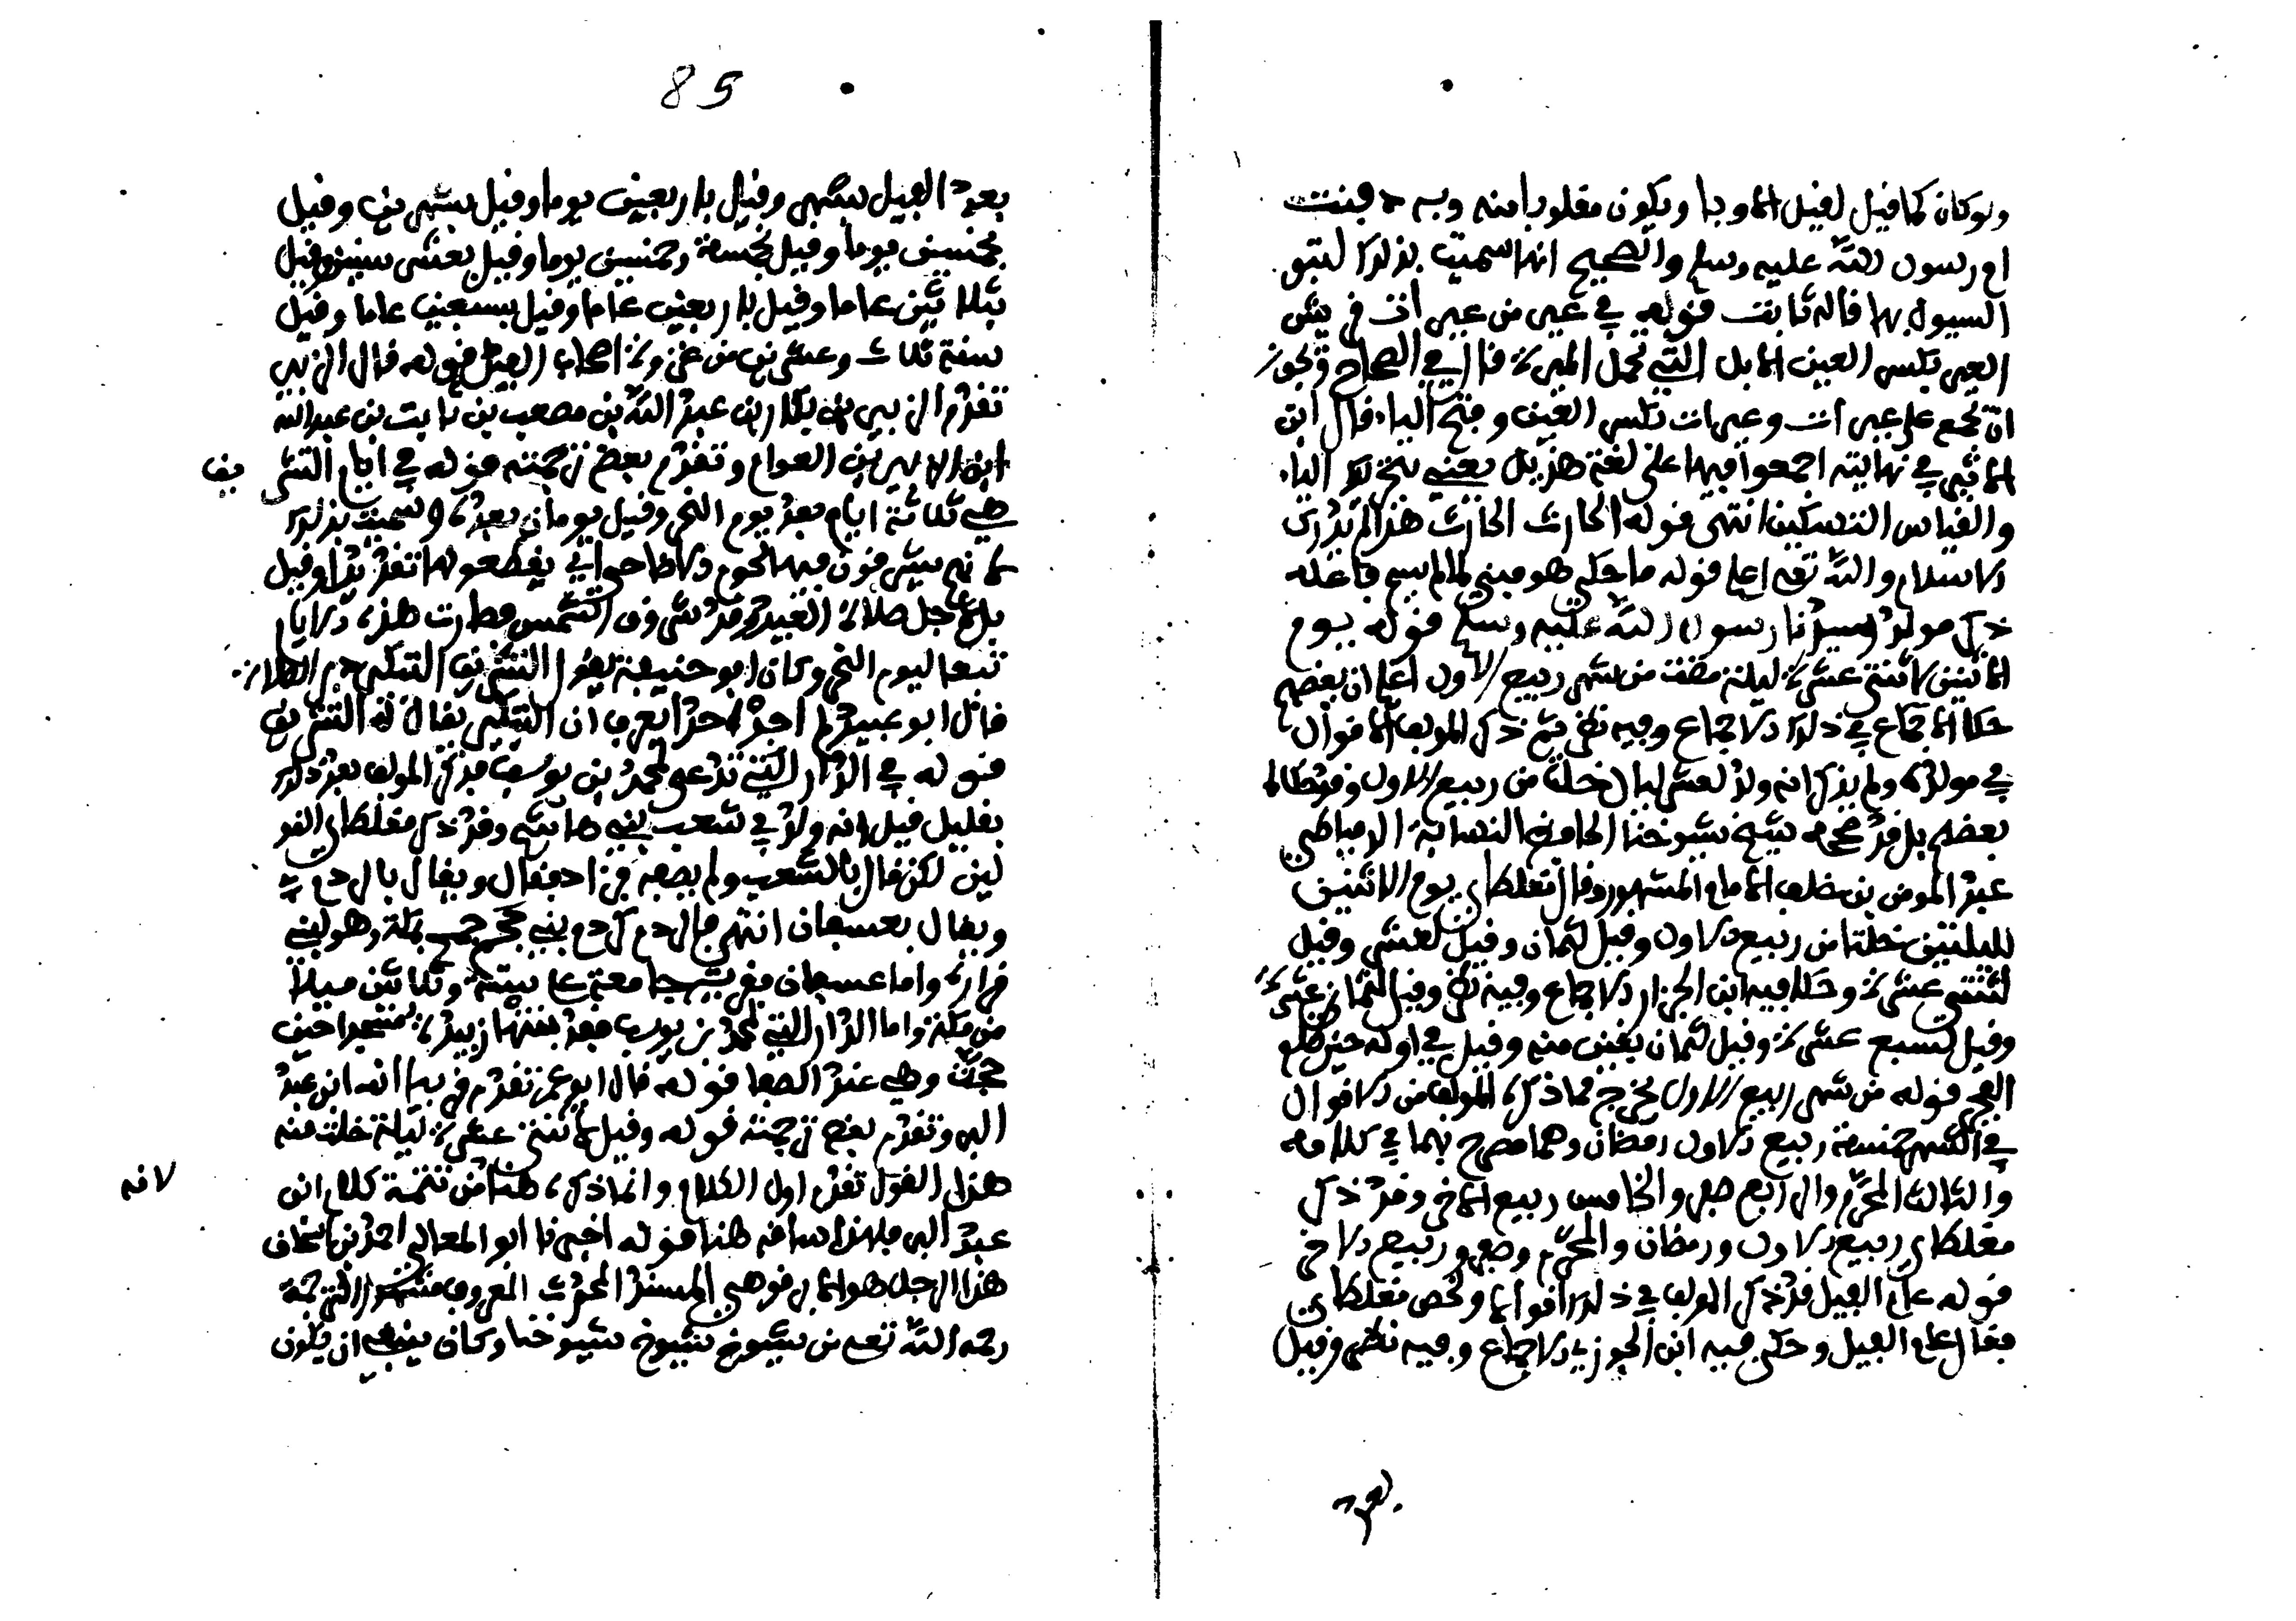 ولو كان كما قيل لقيل الابواء ويكون مقلوبا منه وبه دفنت
ام رسول الله عليه وسلم والصحيح انها سميت بذلك لتبوء
السيول بها قاله ثابت قوله في عير من عيرات قريش
العير بكسر العين الابل التي تحمل الميرة قال في الصحاح ويجوز
ان تجمع على عيرات وعيرات بكسر العين وفتح الياء قال ابن
الاثير في نهايته اجمعوا فيها على لغة هذيل يعني بتحريك الياء
والقياس التسكين انتهى قوله الحارث الحارث هذا لم يدرك
الاسلام والله تعالى اعلم قوله ما حكي هو مبني لما لم يسم فاعله
ذكر مولد سيدنا رسول الله عليه وسلم قوله يوم
الاثنين لاثنتي عشرة ليلة مضت من شهر ربيع الاول اعلم ان بعضهم
حكا الاجماع في ذلك الاجماع وفيه نظر ثم ذكر المولف اقوالا
في مولده ولم يذكر انه ولد لعشر ليال خلت من ربيع الاول وقد قاله
بعضهم بل قد صححه شيخ شيوخنا الحافظ النسابة الدمياطي
عبد المومن بن خلف الامام المشهور وقال مغلطاي يوم الاثنين
لليلتين خلتا من ربيع الاول وقيل لثمان وقيل لعشر وقيل
لثنتي عشرة وحكا فيه ابن الجزار الاجماع وفيه نظر وقيل لثمان عشرة
وقيل لسبع عشرة وقيل لثمان بقين منه وقيل في اوله حين طلع
الفجر قوله من شهر ربيع الاول يخرج مما ذكره المولف من الاقوال
في الشهر خمسة ربيع الاول رمضان وهما مصرح بهما في كلامه
والثالث المحرم والرابع صفر والخامس ربيع الاخر وقد ذكر
مغلطاي ربيع الاول ورمضان والمحرم وصفر وربيع الاخر
قوله عام الفيل قد ذكر المولف في ذلك اقوالا ولخص مغلطاي
فقال عام الفيل وحكى فيه ابن الجوزي الاجماع وفيه نظر وقيل
بعد
85
بعد الفيل بشهر وقيل باربعين يوما وقيل بشهرين وقيل
بخمسين يوما وقيل بخمسة وخمسين يوما وقيل بعشر سنين وقيل
بثلاثين عاما وقيل باربعين عاما وقيل بسبعين عاما وقيل
سنة ثلاث وعشرين من غزوة اصحاب الفيل قوله قال الزبير
تقدم الزبير بن بكار بن عبد الله بن مصعب بن ثابت بن عبد الله
ابن الزبير بن العوام وتقدم بعض ترجمته قوله في ايام التشريق
هي ثلاثة ايام بعد يوم النحر وقيل يومان بعده وسميت بذلك
لانهم يشرقون فيها لحوم الاضاحي اي يقطعونها تقديدا وقيل
بل لاجل صلاة العيد وقت شروق الشمس فصارت هذه الايام
تبعا ليوم النحر وكان ابو حنيفة يقول التشريق التكبير دبر الصلاة
قال ابو عبيد لم اجد احدا يعرف ان التكبير يقال له التشريق
قوله في الدار التي تدعى لمحمد بن يوسف قد ذكر المولف بعد ذلك
بقليل قيل انه ولد في شعب بني هاشم وقد ذكر مغلطاي القو
لين لكن قال بالشعب ولم يصفه فزاد فقال ويقال بالردم
ويقال بعسفان انتهى فالردم ردم بني جمح بمكة وهو لبني
قراد واما عسفان فقرية جامعة على ستة وثلاثين ميلا
من مكة واما الدار التي لمحمد بن يوسف فقد بنتها زبيدة مسجدا حين
حجت وهي عند الصفا قوله قال ابو عمر تقدم قريبا انه ابن عبد
البر وتقدم بعض ترجمته قوله وقيل لاثنتي عشرة ليلة خلت منه
هذا القول تقدم اول الكلام وانما ذكره هنا من تتمة كلام ابن لانه
عبد البر فلهذا ساقه هنا قوله اخبرنا ابو المعالي احمد بن اسحاق
هذا الرجل هو الابرقوهي المسند المحدث المعروف مشهور الترجمة
رحمه الله تعالى من شيوخ شيوخ شيوخنا وكان ينبغي ان يكون